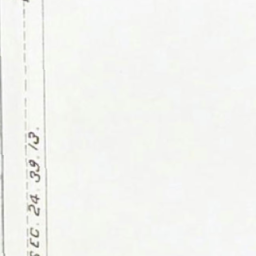 SEC. 24. 39. 13.